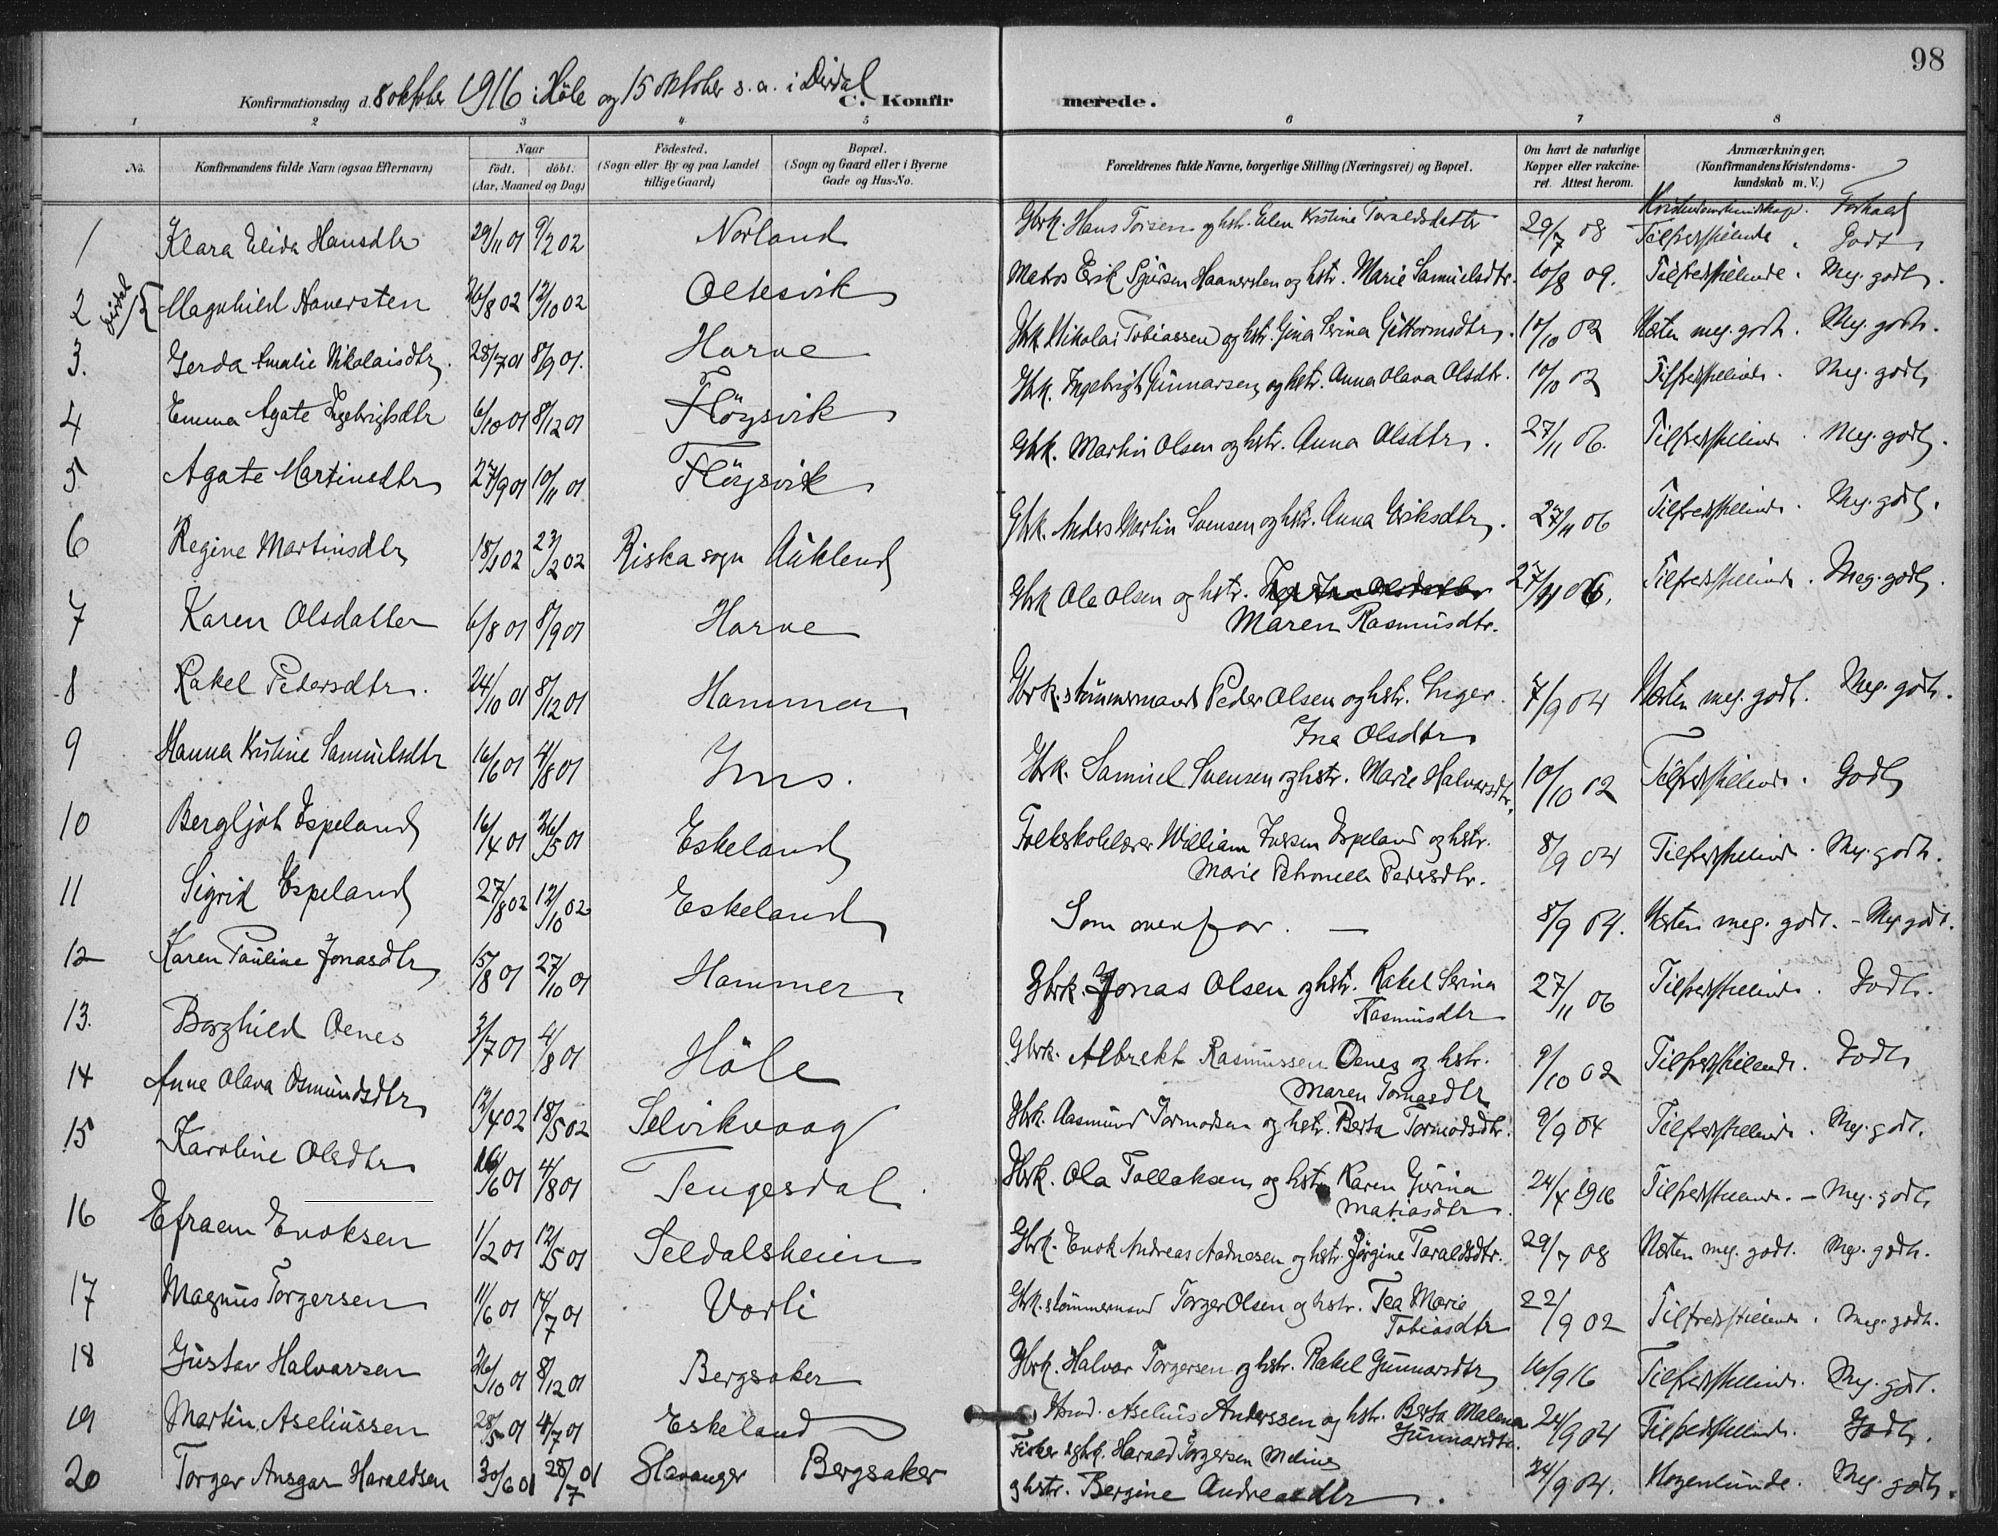 98
Konfirmationsdag d. 8 oktober 1916 i Höle og 15 oktober s. a. i Dirdal C. Konfirmerede.
1 2 3 4 5 6 7 8
No. Konfirmandens fulde Navn (ogsaa Efternavn) Naar født. døbt. (Aar, Maaned og Dag) Fødested. (Sogn eller By og paa Landet tillige Gaard) Bopæl. (Sogn og Gaard eller i Byerne Gade og Hus-No. Forældrenes fulde Navne, borgerlige Stilling (Næringsvei) og Bopæl. Om havt de naturlige Kopper eller vaccineret. Attest herom. Anmærkninger, (Konfirmandens Kristendomskundskab m. V.)
Kristendomskundskap. Forhold
1 Klara Elida Hansdtr 29/11 01 9/2 02 Norland Gbrk. Hans Torsen og hstr. Elen Kristine Taraldsdatter 29/7 08 Tilfredsstillende. Godt
2 Dirdal Magnhild Haversten 26/8 02 12/10 02 Oltesvik Matros Erik Sjursen Haaversten og hstr. Marie Samuelsdtr. 10/8 09. Tilfredsstillende. Meg. godt.
3. Gerda Amalie Nikolaisdtr. 28/7 01 8/9 01. Horve Gbrk. Nikolai Tobiassen og hstr. Gina Serina Guttormsdtr. 10/10 02 Næsten meg. godt. Meg. godt.
4 Emma Agate Ingebrigtsdtr 6/10 01 8/12 01 Fløysvik Gbrk. Ingebrigt Gunnarsen og hstr. Anna Olava Olsdtr. 10/10 02 Tilfredsstillende. Meg. godt.
5 Agate Martinsdtr 27/9 01 10/11 01 Fløysvik Gbrk. Martin Olsen og hstr. Anna Olsdtr. 27/11 06. Tilfredsstillende. Meg. godt.
6 Regine Martinsdtr 18/1 02 23/2 02 Riska sogn Auklend Gbrk. Anders Martin Svensen og hstr. Anna Eriksdtr. 27/11 06 Tilfredsstillende. Meg. godt.
7 Karen Olsdatter 6/8 01 8/9 01 Horve Gbrk Ole Olsen og hstr. 27/11 06. Tilfredsstillende. Meg. godt.
Maren Rasmusdtr.
8 Rakel Pedersdtr. 24/10 01 8/12 01 Hammer Gbrk. & tømmermand Peder Olsen og hstr. Inger 7/9 04 Næsten meg. godt. Meg. godt.
Ina Olsdtr
9 Hanna Kristine Samuelsdtr 16/6 01 4/8 01 Ims. Gbrk. Samuel Svensen og hstr. Marie Halvarsdtr. 10/10 02 Tilfredsstillende. Godt
10 Bergljot Espeland 16/4 01 26/5 01 Eskeland Folkeskolelærer William Iversen Espeland og hstr. 8/9 04 Tilfredsstillende. Meg. godt.
Marie Petronelle Pedersdtr.
11 Sigrid Espeland 27/8 02 12/10 02 Eskeland Som ovenfor. — 8/9 04. Næsten meg. godt. - Meg. godt.
12 Karen Pauline Jonasdtr 15/8 01 27/10 01 Hammer Gbrk. Jonas Olsen og hstr. Rakel Serina 27/11 06 Tilfredsstillende. Godt.
Rasmusdtr
13. Borghild Oenes 3/7 01 4/8 01 Höle Gbrk. Albrekt Rasmussen Oenes og hstr. 9/10 02 Tilfredsstillende. Godt
Maren Tomasdtr
14 Anne Olava Osmundsdtr 12/4 02 18/5 02 Selvikvaag Gbrk. Aasmund Tormodsen og hstr. Berta Tormodsdtr. 9/9 04 Tilfredsstillende. Meg. godt.
15 Karoline Olsdtr 16/6 01 4/8 01 Tengesdal. Gbrk. Ola Tollaksen og hstr. Karen Gurina 24/4 1916 Tilfredsstillende. - Meg. godt
Matiasdtr.
16 Efraem Enoksen 1/2 01 12/5 01 Seldalsheien Gbrk. Enok Andreas Aadnesen og hstr. Jørgine Taraldsdtr. 29/7 08 Næsten meg. godt. Meg. godt.
17 Magnus Torgersen 11/6 01 14/7 01 Vorli Gbrk. & tømmermand Torger Olsen og hstr. Tea Marie 22/9 02 Tilfredsstillende. Meg. godt.
Tobiasdtr
18 Gustav Halvarsen 26/10 01 8/12 01 Bergsaker Gbrk. Halvor Torgersen og hstr. Rakel Gunnarsdtr 10/9 16 Tilfredsstillende. Meg. godt.
19 Martin Aseliussen 28/5 01 4/7 01 Eskeland Aselius Anderssen og hstr. Berta Malena 24/9 04 Tilfredsstillende. Godt.
Gunnarsdtr.
20 Torger Ansgar Haraldsen 30/6 01 28/7 01 Stavanger Bergsaker Fisker & gbk. Harald Torgersen Meling 24/9 04. Nogenlunde. Meg. godt.
og hstr. Bergine Andreasdtr.